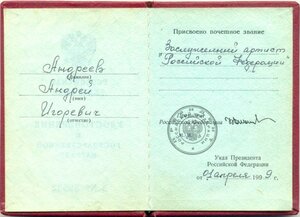 Андреев
(фамилия)
Андрей
(имя)
Игоревич
(отчество)
Присвоено почетное звание
Заслуженный артист
"Российской Федерации"
Российской Федерации
Указ Президента
Российской Федерации
от 01 апреля 1999 г.